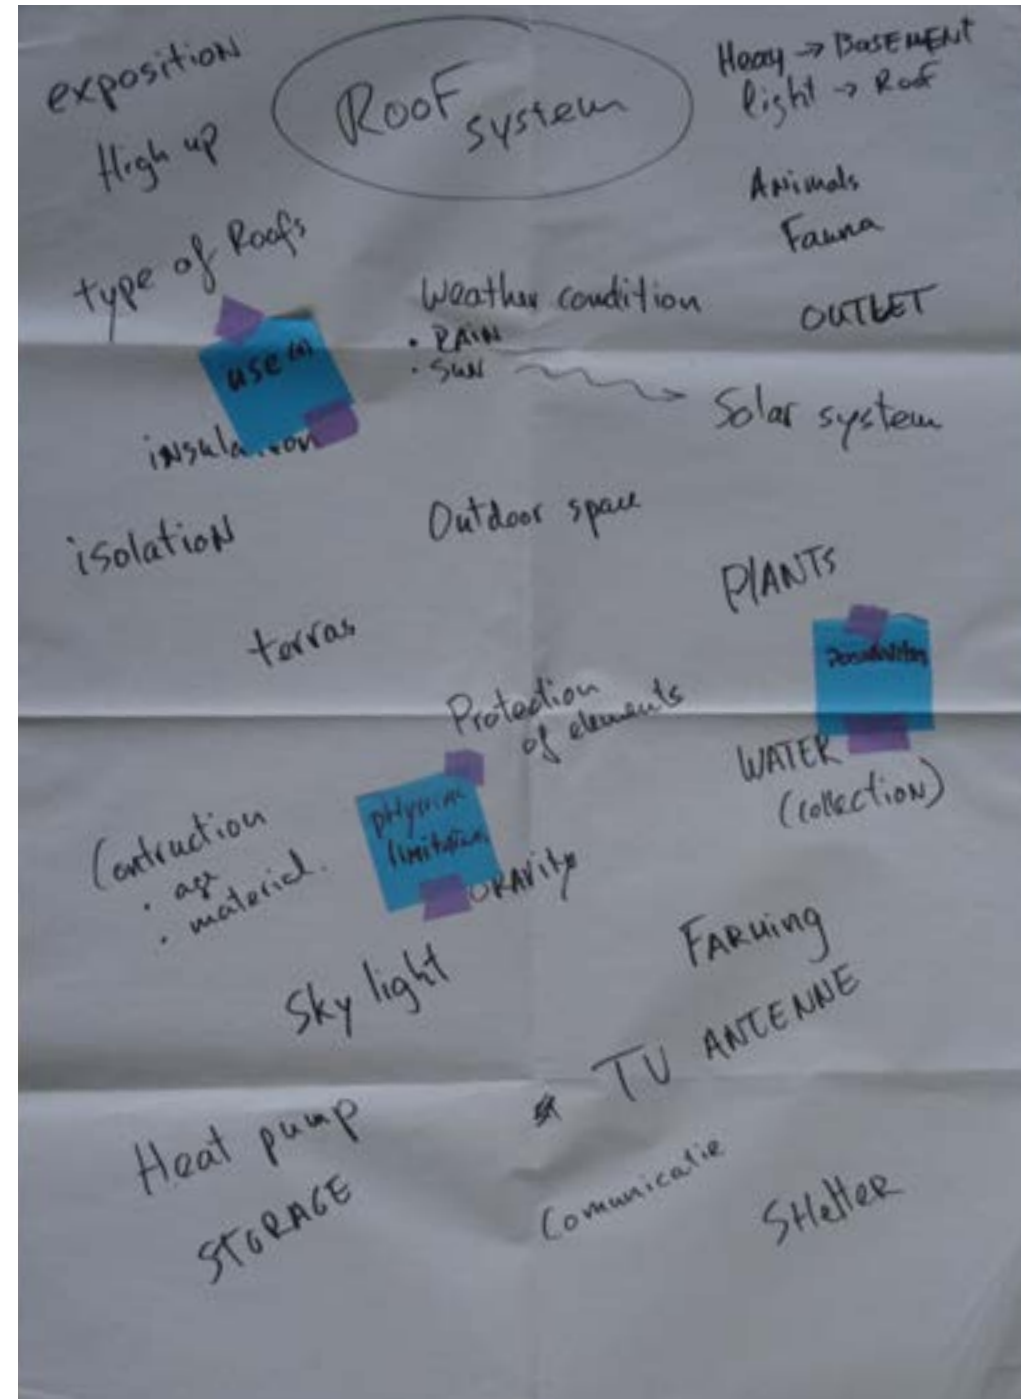 exposition
High up
Roof
system
Heavy → BASEMENT
light → Roof
Animals
Fauna
type of Roofs
Weather condition
• RAIN
• SUN
OUTLET
use (s)
Solar system
insulation
isolation
Outdoor space
PlANTS
terras
Protection
of elements
WATER
(collection)
Contruction
• age
• material.
limitations
GRAVity
Sky light
FARMing
TV ANTENNE
Heat pump
STORAGE
Comunicatie
SHelter